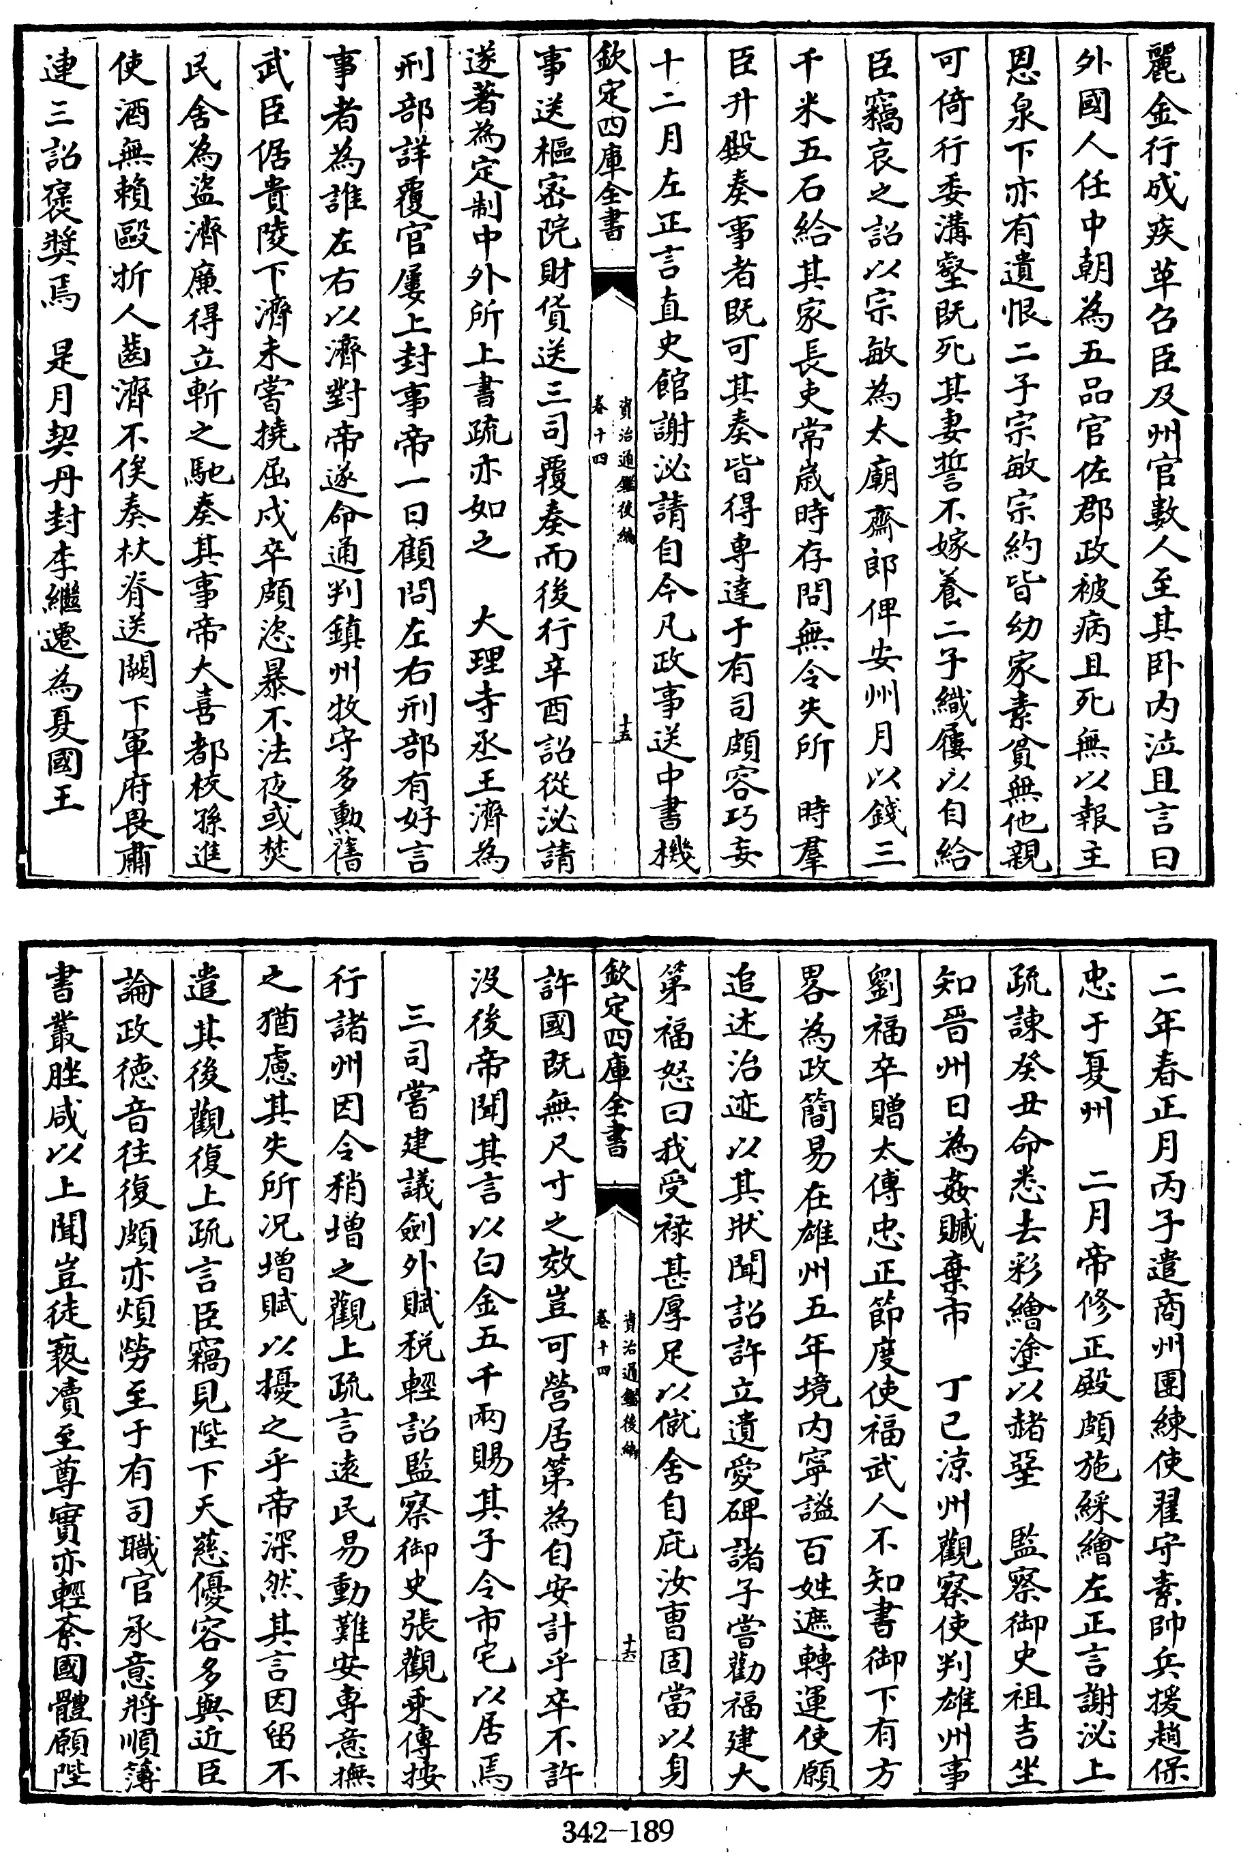 麗金行成疾革召臣及州官數人至其卧内泣且言曰
外國人任中朝為五品官佐郡政被病且死無以報主
恩泉下亦有遺恨二子宗敏宗約皆幼家素貧無他親
可倚行委溝壑既死其妻誓不嫁養二子織屨以自給
臣竊哀之詔以宗敏為太廟齋郎俾安州月以錢三
千米五石給其家長吏常歲時存問無令失所 時羣
臣升殿奏事者既可其奏皆得專達于有司頗容巧妄
十二月左正言直史館謝泌請自今凡政事送中書機
欽定四庫全書
資治通鑑後編
卷十四
十五
事送樞密院財貨送三司覆奏而後行辛酉詔從泌請
遂著為定制中外所上書疏亦如之 大理寺丞王濟為
刑部詳覆官屢上封事帝一日顧問左右刑部有好言
事者為誰左右以濟對帝遂命通判鎮州牧守多勳舊
武臣倨貴陵下濟未嘗撓屈戍卒頗恣暴不法夜或焚
民舍為盜濟廉得立斬之馳奏其事帝大喜都校孫進
使酒無賴毆折人齒濟不俟奏杖脊送闕下軍府畏肅
連三詔褒獎焉 是月契丹封李繼遷為夏國王
二年春正月丙子遣商州團練使翟守素帥兵援趙保
忠于夏州 二月帝修正殿頗施綵繪左正言謝泌上
疏諫癸丑命悉去彩繪塗以赭堊 監察御史祖吉坐
知晉州日為姦贓棄市 丁巳涼州觀察使判雄州事
劉福卒贈太傅忠正節度使福武人不知書御下有方
畧為政簡易在雄州五年境内寧謐百姓遮轉運使願
追述治迹以其狀聞詔許立遺愛碑諸子嘗勸福建大
第福怒曰我受祿甚厚足以僦舍自庇汝曹固當以身
欽定四庫全書
資治通鑑後編
卷十四
十六
許國既無尺寸之效豈可營居第為自安計乎卒不許
没後帝聞其言以白金五千兩賜其子令市宅以居焉
三司嘗建議劍外賦税輕詔監察御史張觀乘傳按
行諸州因令稍增之觀上疏言遠民易動難安專意撫
之猶慮其失所況增賦以擾之乎帝深然其言因留不
遣其後觀復上疏言臣竊見陛下天慈優容多與近臣
論政德音往復頗亦煩勞至于有司職官承意將順簿
書叢脞咸以上聞豈徒褻瀆至尊實亦輕紊國體願陛
342-189